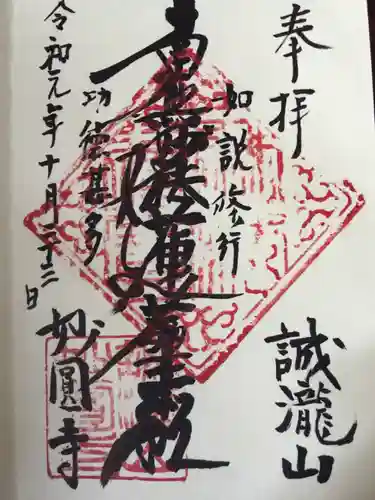 奉拝
誠瀧山
如説修行
南無妙法蓮華経
功徳甚多
令和元年十月二十二日
妙圓寺